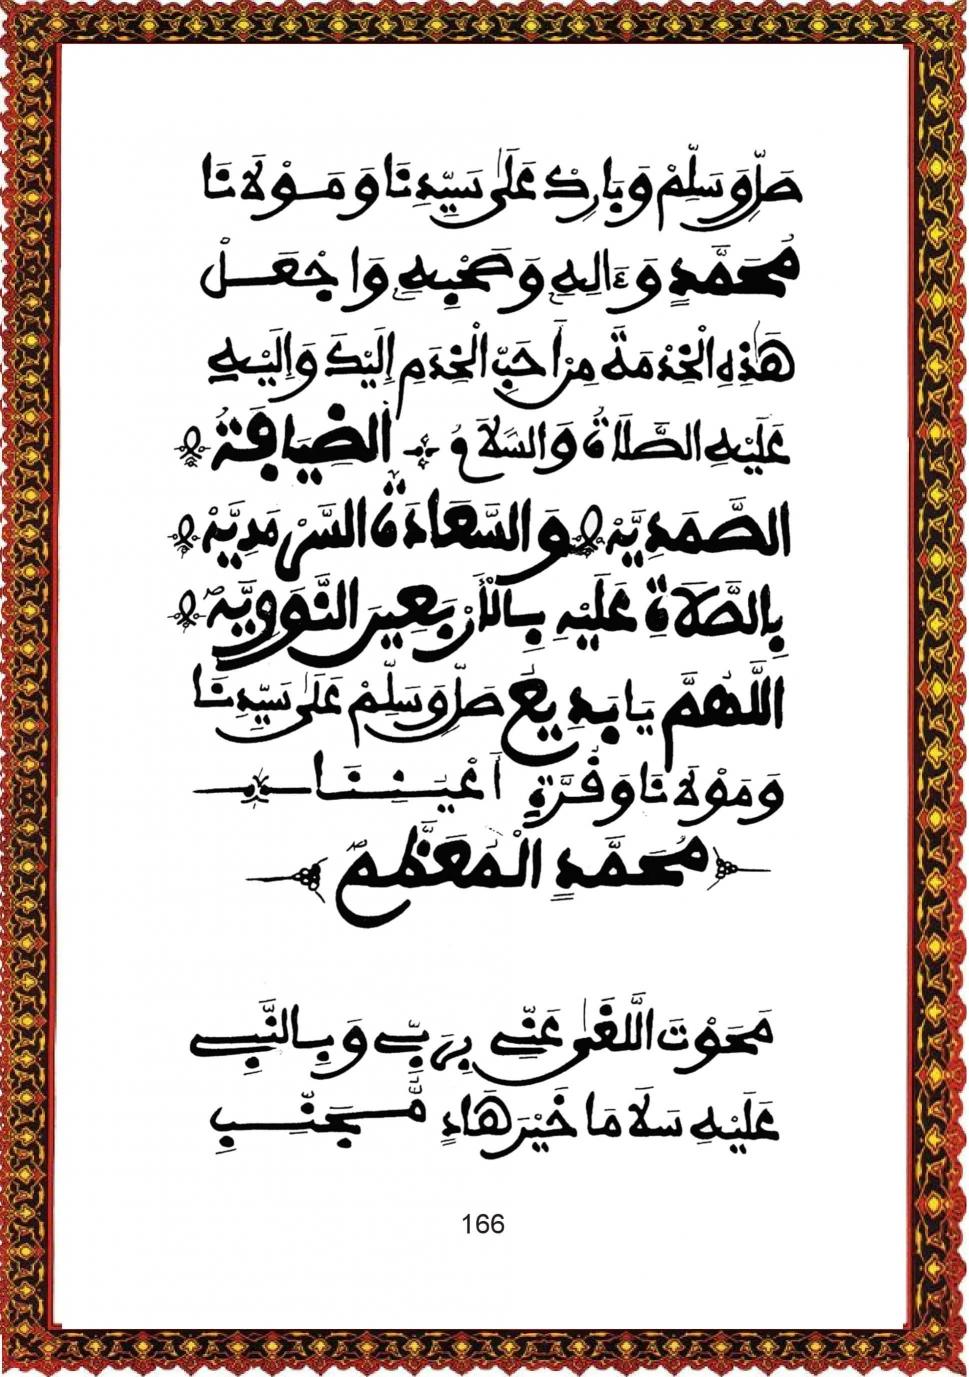 صَلِّ وَسَلِّمْ وَبَارِكْ عَلَى سَيِّدِنَا وَمَوْلَانَا
مُحَمَّدٍ وَءَالِهِ وَصَحْبِهِ وَاجْعَلْ
هَذِهِ الْخِدْمَةَ مِنْ أَحَبِّ الْخِدَمِ إِلَيْكَ وَإِلَيْهِ
عَلَيْهِ الصَّلَاةُ وَالسَّلَامُ الضِّيَافَةُ
الصَّمَدِيَّةْ وَالسَّعَادَةُ السَّرْمَدِيَّةْ
بِالصَّلَاةِ عَلَيْهِ بِالْأَرْبَعِينَ النَّوَوِيَّةْ
اللَّهُمَّ يَا بَدِيعُ صَلِّ وَسَلِّمْ عَلَى سَيِّدِنَا
وَمَوْلَانَا وَقُرَّةِ أَعْيُنِنَا
مُحَمَّدٍ الْمُعَظَّمْ
مَحَوْتَ اللَّغَى عَنِّي بِرَبِّي وَبِالنَّبِي
عَلَيْهِ سَلَامَا خَيْرَ هَادٍ مُّجَنِّبِ
166